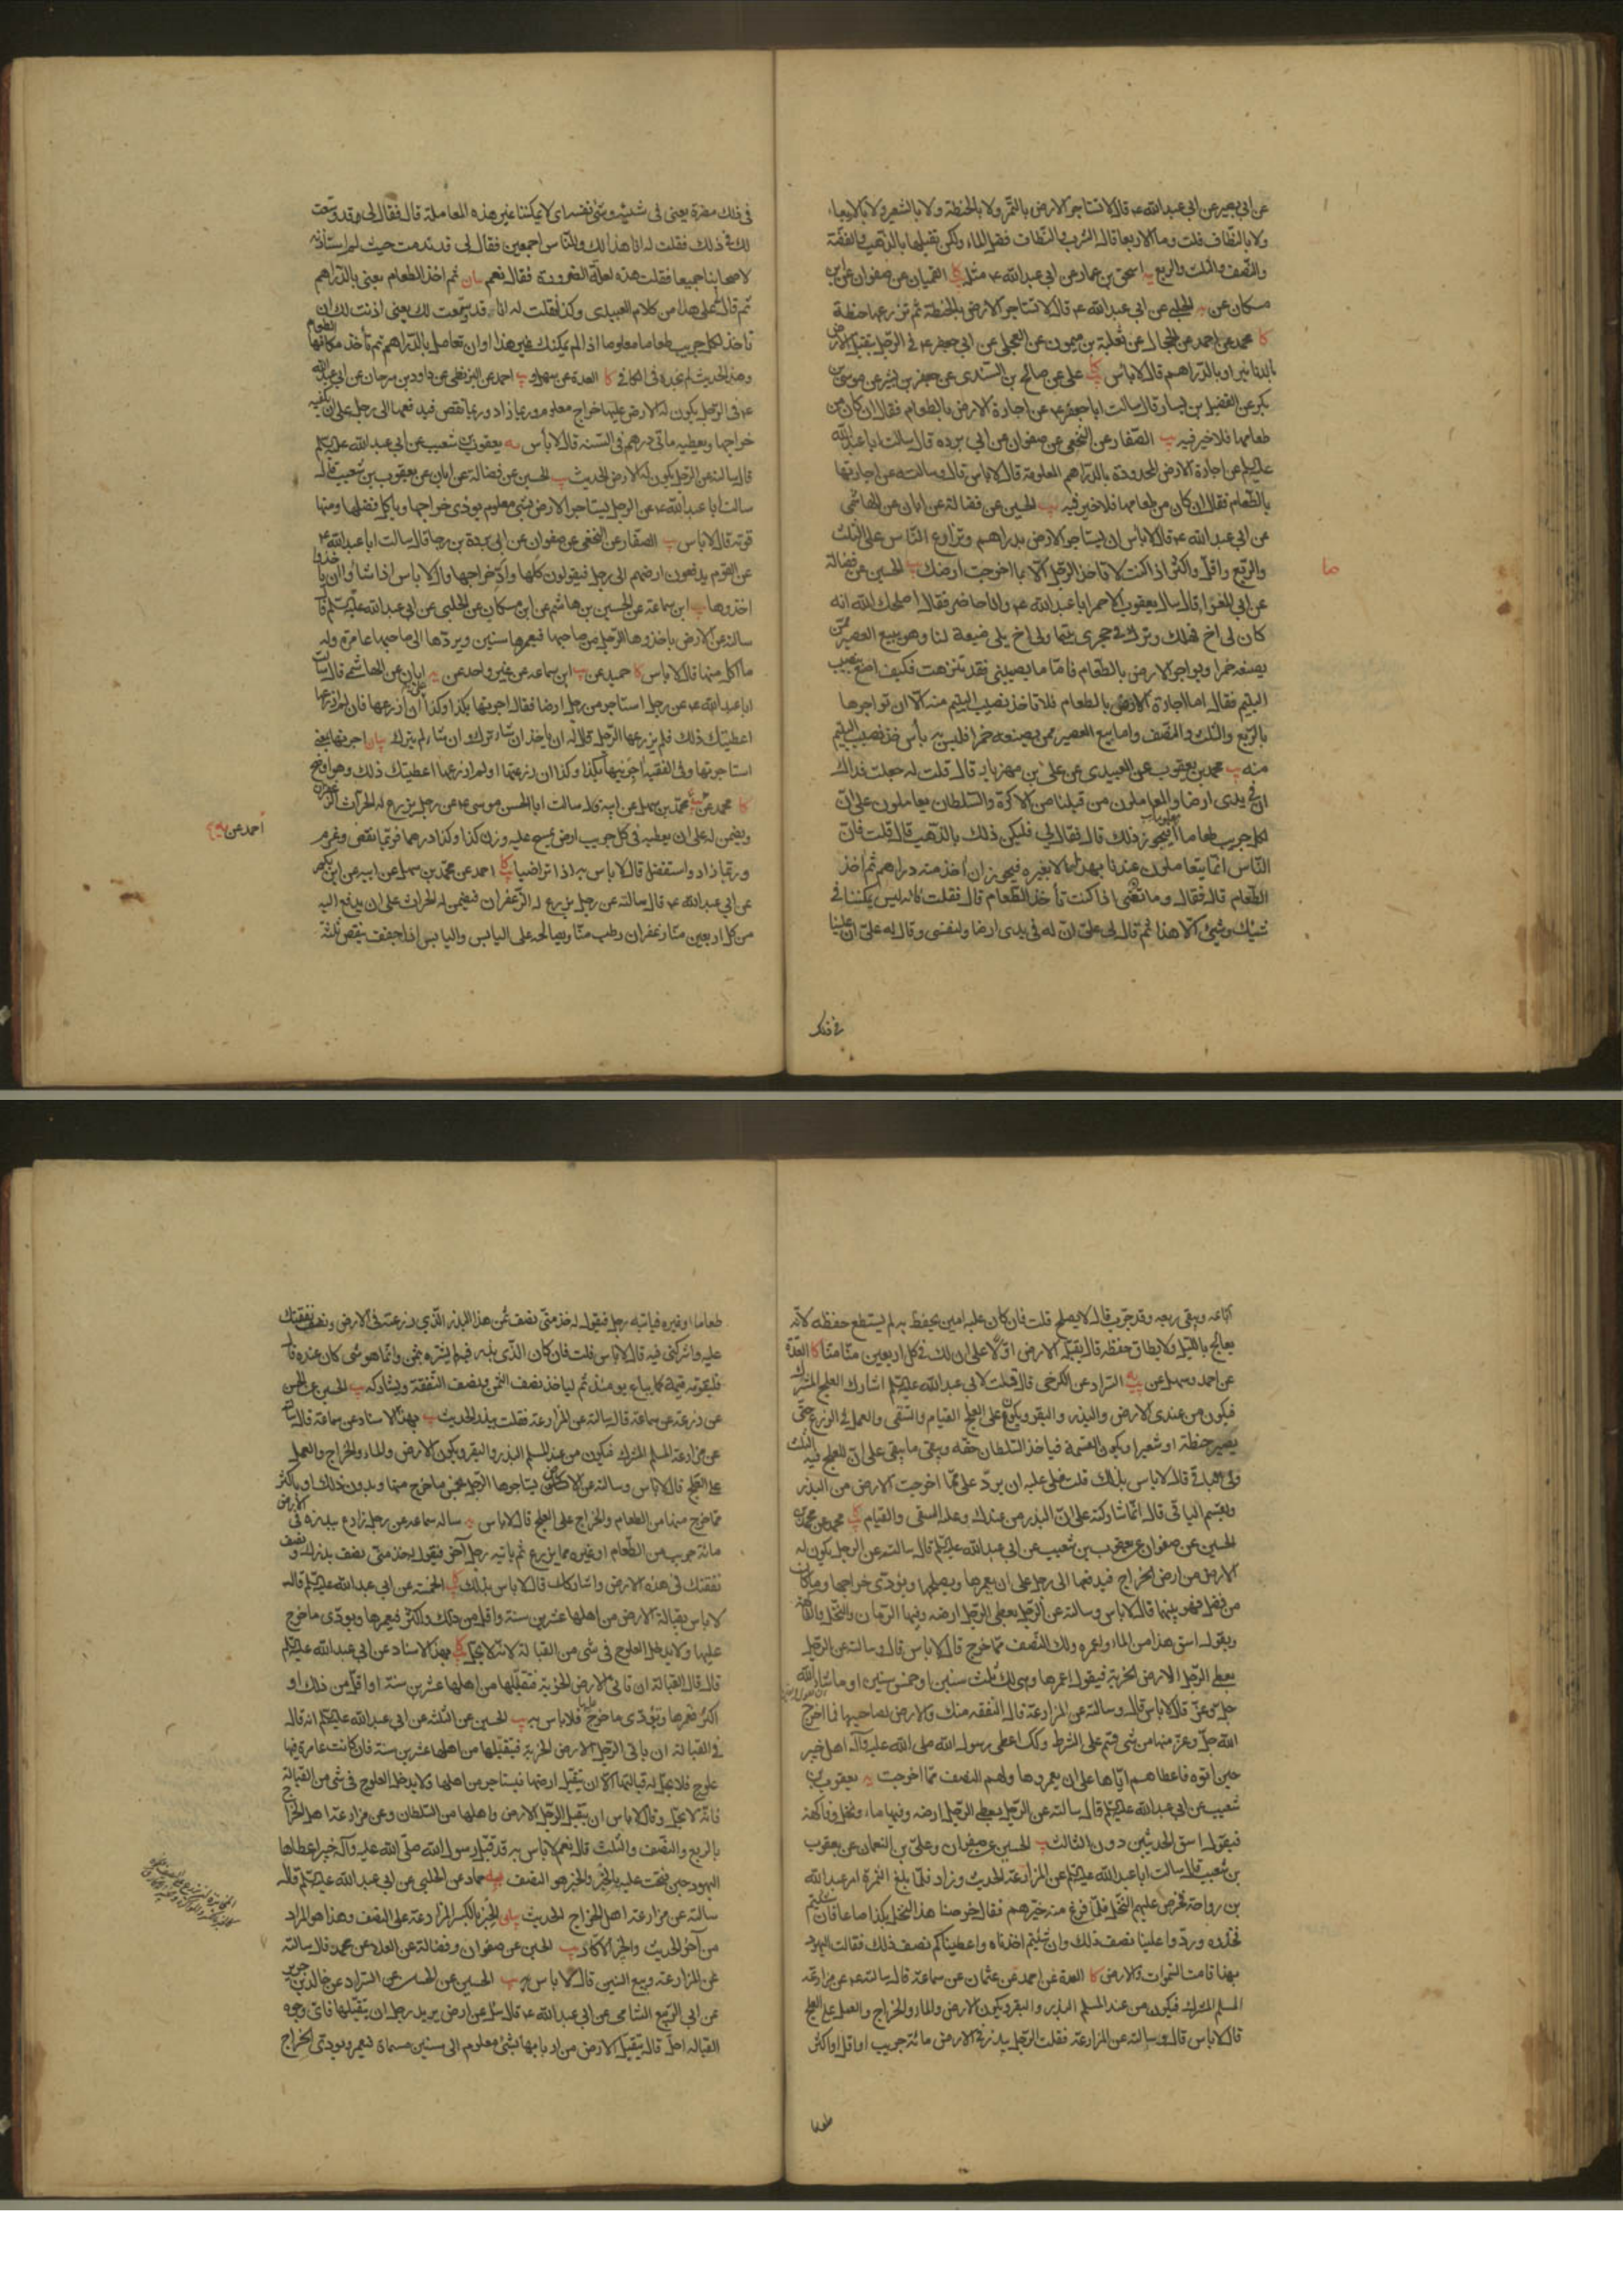 عن ابي بصير عن ابي عبدالله ع قال لا تستاجر الارض بالتمر ولا بالحنطة ولا بالشعير ولا بالاربعاء
ولا بالنطاف قلت وما الاربعا قال الشرب والنطاف فضل الماء ولكن تقبلها بالذهب والفضة
والنصف والثلث والربع يه اسحق بن عمار عن ابي عبدالله ع مثله كا القميان عن صفوان عن ابن
مسكان عن يه الحلبي عن ابي عبدالله ع قال لا تستاجر الارض بالحنطة ثم تزرعها حنطة
كا محمد عن احمد عن الحجال عن ثعلبة بن ميمون عن العجلي عن ابي جعفر ع في الرجل يتقبل الارض
بالدنانير او بالدراهم قال لا باس علي عن صالح بن السندي عن جعفر بن بشير عن موسى بن
بكر عن الفضيل بن يسار قال سالت ابا جعفر ع عن اجارة الارض بالطعام فقال ان كان من
طعامها فلا خير فيه يب الصفار عن النخعي عن صفوان عن ابي برده قال سالت ابا عبدالله
عليلم عن اجارة الارض المحدودة بالدراهم المعلومة قال لا باس قال وسالته عن اجارتها
بالطعام فقال ان كان من طعامها فلا خير فيه يب الحسين عن فضالة عن ابان عن الهاشمي
عن ابي عبدالله ع قال لا باس ان يستاجر الارض بدراهم وتزارع الناس على الثلث
والربع واقل واكثر اذا كنت لا تاخذ الرجل الا بما اخرجت ارضك يب الحسين عن فضالة
ما
عن ابي المغرا قال سال يعقوب الاحمر ابا عبدالله ع وانا حاضر فقال اصلحك الله انه
كان لي اخ فهلك وترك في حجري يتيما ولي اخ يلي ضيعة لنا وهو يبيع العصير ممن
يصنعه خمرا ويواجر الارض بالطعام فاما ما يصيبني فقد تنزهت فكيف اصنع بنصيب
اليتيم فقال اما اجارة الارض بالطعام فلا تاخذ نصيب اليتيم منه الا ان تواجرها
بالربع والثلث والنصف واما بيع العصير ممن يصنعه خمرا فليس به بأس خذ نصيب اليتيم
منه يب محمد بن يعقوب عن العبيدي عن علي بن مهزيار قال قلت له جعلت فداك
ان في يدي ارضا والمعاملون من قبلنا من الاكرة والسلطان يعاملون على ان
لكل جريب طعاما معلوما أفيجوز ذلك قال فقال لي فليكن ذلك بالذهب قال قلت فان
الناس انما يتعاملون عندنا بهذا لا بغيره فيجوز ان آخذ منه دراهم ثم آخذ
الطعام قال فقال وما تغني اذا كنت تأخذ الطعام قال فقلت فانه ليس يمكننا في
شيئك وشيئي الا هذا ثم قال لي على ان له في يدي ارضا ولنفسي وقال له على ان علينا
في ذلك
في ذلك مضرة يعني في شيئه وشئ نفسه اي لا يمكننا غير هذه المعاملة قال فقال لي قد وسعت
لك في ذلك فقلت له انا هذا لك وللناس اجمعين فقال لي قد ندمت حيث لم استأذنه
لاصحابنا جميعا فقلت هذه لعلة الضرورة فقال نعم بيان ثم اخذ الطعام يعني بالدراهم
ثم قال لي علي هذا من كلام العبيدي وكذا فقلت له انا قد وسعت لك يعني اذنت لك ان
تاخذ لكل جريب طعاما معلوما اذا لم يمكنك غير هذا او ان تعامل بالدراهم ثم تأخذ مكانها الطعام
وهذا الحديث لم نجده في الكافي كا العدة عن سهل يب احمد عن البزنطي عن داود بن سرحان عن ابي عبدالله
ع في الرجل يكون له الارض عليها خراج معلوم وربما زاد وربما نقص فيدفعها الى رجل على ان يكفيه
خراجها ويعطيه مأتي درهم في السنة قال لا بأس يه يعقوب بن شعيب عن ابي عبدالله عليلم
قال سالته عن الرجل يكون له الارض الحديث يب الحسين عن فضالة عن ابان عن يعقوب بن شعيب قال
سالت ابا عبدالله ع عن الرجل يستاجر الارض بشئ معلوم يؤدي خراجها وياكل فضلها ومنها
قوته قال لا باس يب الصفار عن النخعي عن صفوان عن ابي بردة بن رجا قال سالت ابا عبدالله ع
عن القوم يدفعون ارضهم الى رجل فيقولون كلها واد خراجها قال لا باس اذا شاؤا ان ياخذوا
اخذوها يب ابن سماعة عن الحسين بن هاشم عن ابن مسكان عن الحلبي عن ابي عبدالله عليلم قال
سالته عن الارض ياخذها الرجل من صاحبها فيعمرها سنين ويردها الى صاحبها عامرة وله
ما اكل منها قال لا باس كا حميد عن يب ابن سماعة عن غير واحد عن يه ابان عن الهاشمي قال سالت
ابا عبدالله ع عن رجل استاجر من رجل ارضا فقال اجرنيها بكذا وكذا على ان ازرعها فان لم ازرعها
اعطيتك ذلك فلم يزرعها الرجل قال له ان ياخذ ان شاء ترك وان شاء لم يترك بيان اجرتها يعني
استاجرتها وفي الفقيه آجرنيها بكذا وكذا ان زرعتها او لم ازرعها اعطيتك ذلك وهو اوضح
كا محمد عن محمد بن سهل عن ابيه قال سالت ابا الحسن موسى ع عن رجل يزرع له الحراث الزعفران
احمد عن
ويضمن له على ان يعطيه في كل جريب ارض يمسح عليه وزن كذا وكذا درهما فربما نقص وغرم
وربما زاد واستفضل قال لا باس به اذا تراضيا كا احمد عن محمد بن سهل عن ابيه عن ابن بكير
عن ابي عبدالله ع قال سالته عن رجل يزرع له الزعفران فيضمن له الحراث على ان يدفع اليه
من كل اربعين منا زعفران رطب منا ويصالحه على اليابس واليابس اذا جفف ينقص ثلثة
ارباعه ويبقى ربعه وقد جرب قال لا يصلح قلت فان كان عليه امين يحفظ به لم يستطع حفظه لانه
يعالج بالليل ولا يطاق حفظه قال يقبله الارض اولا على ان لك في كل اربعين منا منا كا العدة
عن احمد وسهل عن السراد عن الكرخي قال قلت لابي عبدالله عليلم اشارك العلج المشرك
فيكون من عندي الارض والبذر والبقر ويكون على العلج القيام والسقي والعمل في الزرع حتى
يصير حنطة او شعيرا ويكون القسمة فياخذ السلطان حقه ويبقى ما يبقى على ان للعلج فيه الثلث
ولي الباقي قال لا باس بذلك قلت فلي عليه ان يرد علي مما اخرجت الارض من البذر
ويقسم الباقي قال انما شاركته على ان البذر من عندك وعليه السقي والقيام محمد عن محمد بن
الحسين عن صفوان عن يعقوب بن شعيب عن ابي عبدالله عليلم قال سالته عن الرجل يكون له
الارض من ارض الخراج فيدفعها الى رجل على ان يعمرها ويصلحها ويؤدي خراجها وما كان
من فضل فهو بينهما قال لا باس وسالته عن الرجل يعطي الرجل ارضه وفيها الرمان والنخل والفاكهة
ويقول اسق هذا من الماء واعمره ولك النصف مما خرج قال لا باس قال وسالته عن الرجل
يعطي الرجل الارض الخربة فيقول اعمرها وهي لك ثلث سنين او خمس سنين او ما شاء الله
قال لا باس قال وسالته عن المزارعة قال النفقه منك والارض لصاحبها فما اخرج
الله جل وعز منها من شئ قسم على الشرط وكك اعطى رسول الله صلى الله عليه وآله اهل خيبر
حين اتوه فاعطاهم اياها على ان يعمروها ولهم النصف مما اخرجت يه يعقوب بن
شعيب عن ابي عبدالله عليلم قال سالته عن الرجل يعطي الرجل ارضه وفيها ماء ونخل وفاكهة
فيقول اسق الحديثين دون الثالث يب الحسين عن صفوان وعلي بن النعمان عن يعقوب
بن شعيب قال سالت ابا عبدالله عليلم عن المزارعة الحديث وزاد فلما بلغ الثمرة امر عبدالله
بن رواحة فخرص عليهم النخل فلما فرغ منه خيرهم فقال خرصنا هذا النخل بكذا صاعا فان شئتم
فخذوه وردوا علينا نصف ذلك وان شئتم اخذناه واعطيناكم نصف ذلك فقالت اليهود
بهذا قامت السموات والارض كا العدة عن احمد عن عثمان عن سماعة قال سالته ع عن مزارعة
المسلم المشرك فيكون من عند المسلم البذر والبقر ويكون الارض والماء والخراج والعمل على العلج
قال لا باس قال وسالته عن المزارعة فقلت الرجل يبذر في الارض مائة جريب او اقل او اكثر
طعاما
طعاما او غيره فياتيه رجل فيقول له خذ مني نصف ثمن هذا البذر الذي زرعته في الارض ونصف نفقتك
عليه واشركني فيه قال لا باس قلت فان كان الذي بذره فيه لم يشتره بثمن وانما هو شئ كان عنده قال
فليقومه قيمة كما يباع يومئذ ثم لياخذ نصف الثمن ونصف النفقة ويشاركه يب الحسين عن الحسن
عن زرعة عن سماعة قال سالته عن المزارعة فقلت يبذر الحديث يب بهذا الاسناد عن سماعة قال سالته
عن مزارعة المسلم المشرك فيكون من عند المسلم البذر والبقر ويكون الارض والماء والخراج والعمل
على العلج قال لا باس وسالته عن الارض يستاجرها الرجل بخمس ما خرج منها وبدون ذلك او باكثر
مما خرج منها من الطعام والخراج على العلج قال لا باس يه ساله سماعة عن رجل زارع ببذره في الارض
مائة جريب من الطعام او غيره مما يزرع ثم ياتيه رجل آخر فيقول خذ مني نصف بذرك ونصف
نفقتك في هذه الارض واشاركك قال لا باس بذلك الخمسة عن ابي عبدالله عليلم قال
لا باس بقبالة الارض من اهلها عشرين سنة واقل من ذلك واكثر فيعمرها ويودي ما خرج
عليها ولا يدخل العلوج في شئ من القبالة لانه لا يحل بهذا الاسناد عن ابي عبدالله عليلم
قال قال القبالة ان تاتي الارض الخربة فتقبلها من اهلها عشرين سنة او اقل من ذلك او
اكثر فتعمرها وتؤدي ما خرج عليها فلا باس به يب الحسين عن الثلثة عن ابي عبدالله عليلم انه قال
في القبالة ان ياتي الرجل الارض الخربة فيتقبلها من اهلها عشرين سنة فان كانت عامرة فيها
علوج فلا يحل له قبالتها الا ان يتقبل ارضها فيستاجر من اهلها ولا يدخل العلوج في شئ من القبالة
فانه لا يحل وقال لا باس ان يتقبل الرجل الارض واهلها من السلطان وعن مزارعة اهل الخراج
بالربع والنصف والثلث قال نعم لا باس به قد قبل رسول الله صلى الله عليه وآله خيبر اعطاها
اليهود حين فتحت عليه بالخبر والخبر هو النصف يه حماد عن الحلبي عن ابي عبدالله عليلم قال
سالته عن مزارعة اهل الخراج الحديث بيان الخبر بالكسر المزارعة على النصف وهذا هو المراد
من آخر الحديث والخبر الاكار يب الحسين عن صفوان وفضالة عن العلاء عن محمد قال سالته
عن المزارعة وبيع السنين قال لا باس يب الحسين عن الحسن عن السراد عن خالد بن جرير
عن ابي الربيع الشامي عن ابي عبدالله ع قال سئل عن ارض يريد رجل ان يتقبلها فاي وجوه
القبالة احل قال يتقبل الارض من اربابها بشئ معلوم الى سنين مسماة فيعمر ويودي الخراج